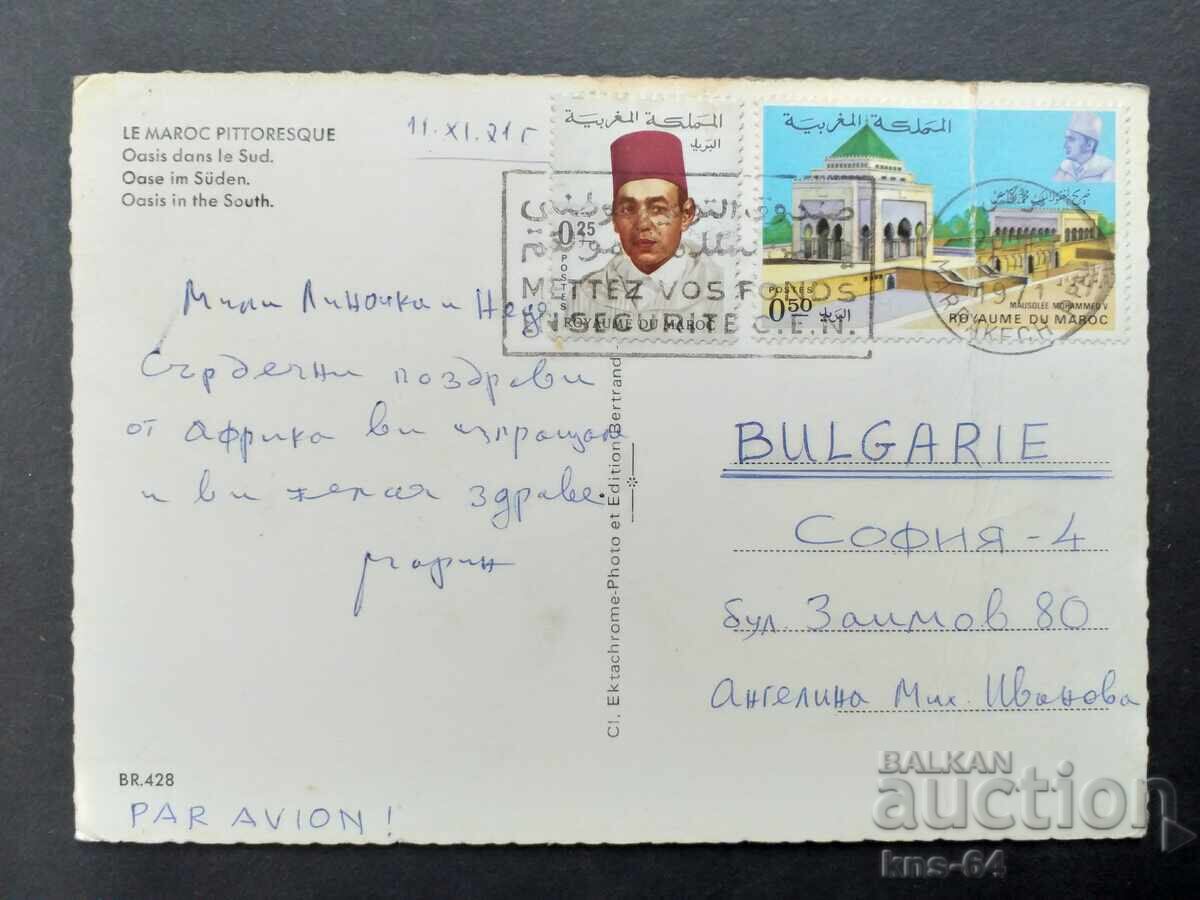 LE MAROC PITTORESQUE
Oasis dans le Sud.
Oase im Süden.
Oasis in the South.
المملكة المغربية
البريد
0,25
POSTES
ROYAUME DU MAROC
المملكة المغربية
POSTES
0,50 البريد
MAUSOLÉE MOHAMMED V
ROYAUME DU MAROC
METTEZ VOS FONDS
EN SECURITE C.E.N.
MARRAKECH
Мили Линочка и
Сърдечни поздрави
от Африка ви изпращам
и ви желая здраве.
Марин
Cl. Ektachrome-Photo et Edition Bertrand
BULGARIE
СОФИЯ-4
бул. Заимов 80
Ангелина Мих. Иванова
BR.428
PAR AVION!
BALKAN
auction
kns-64